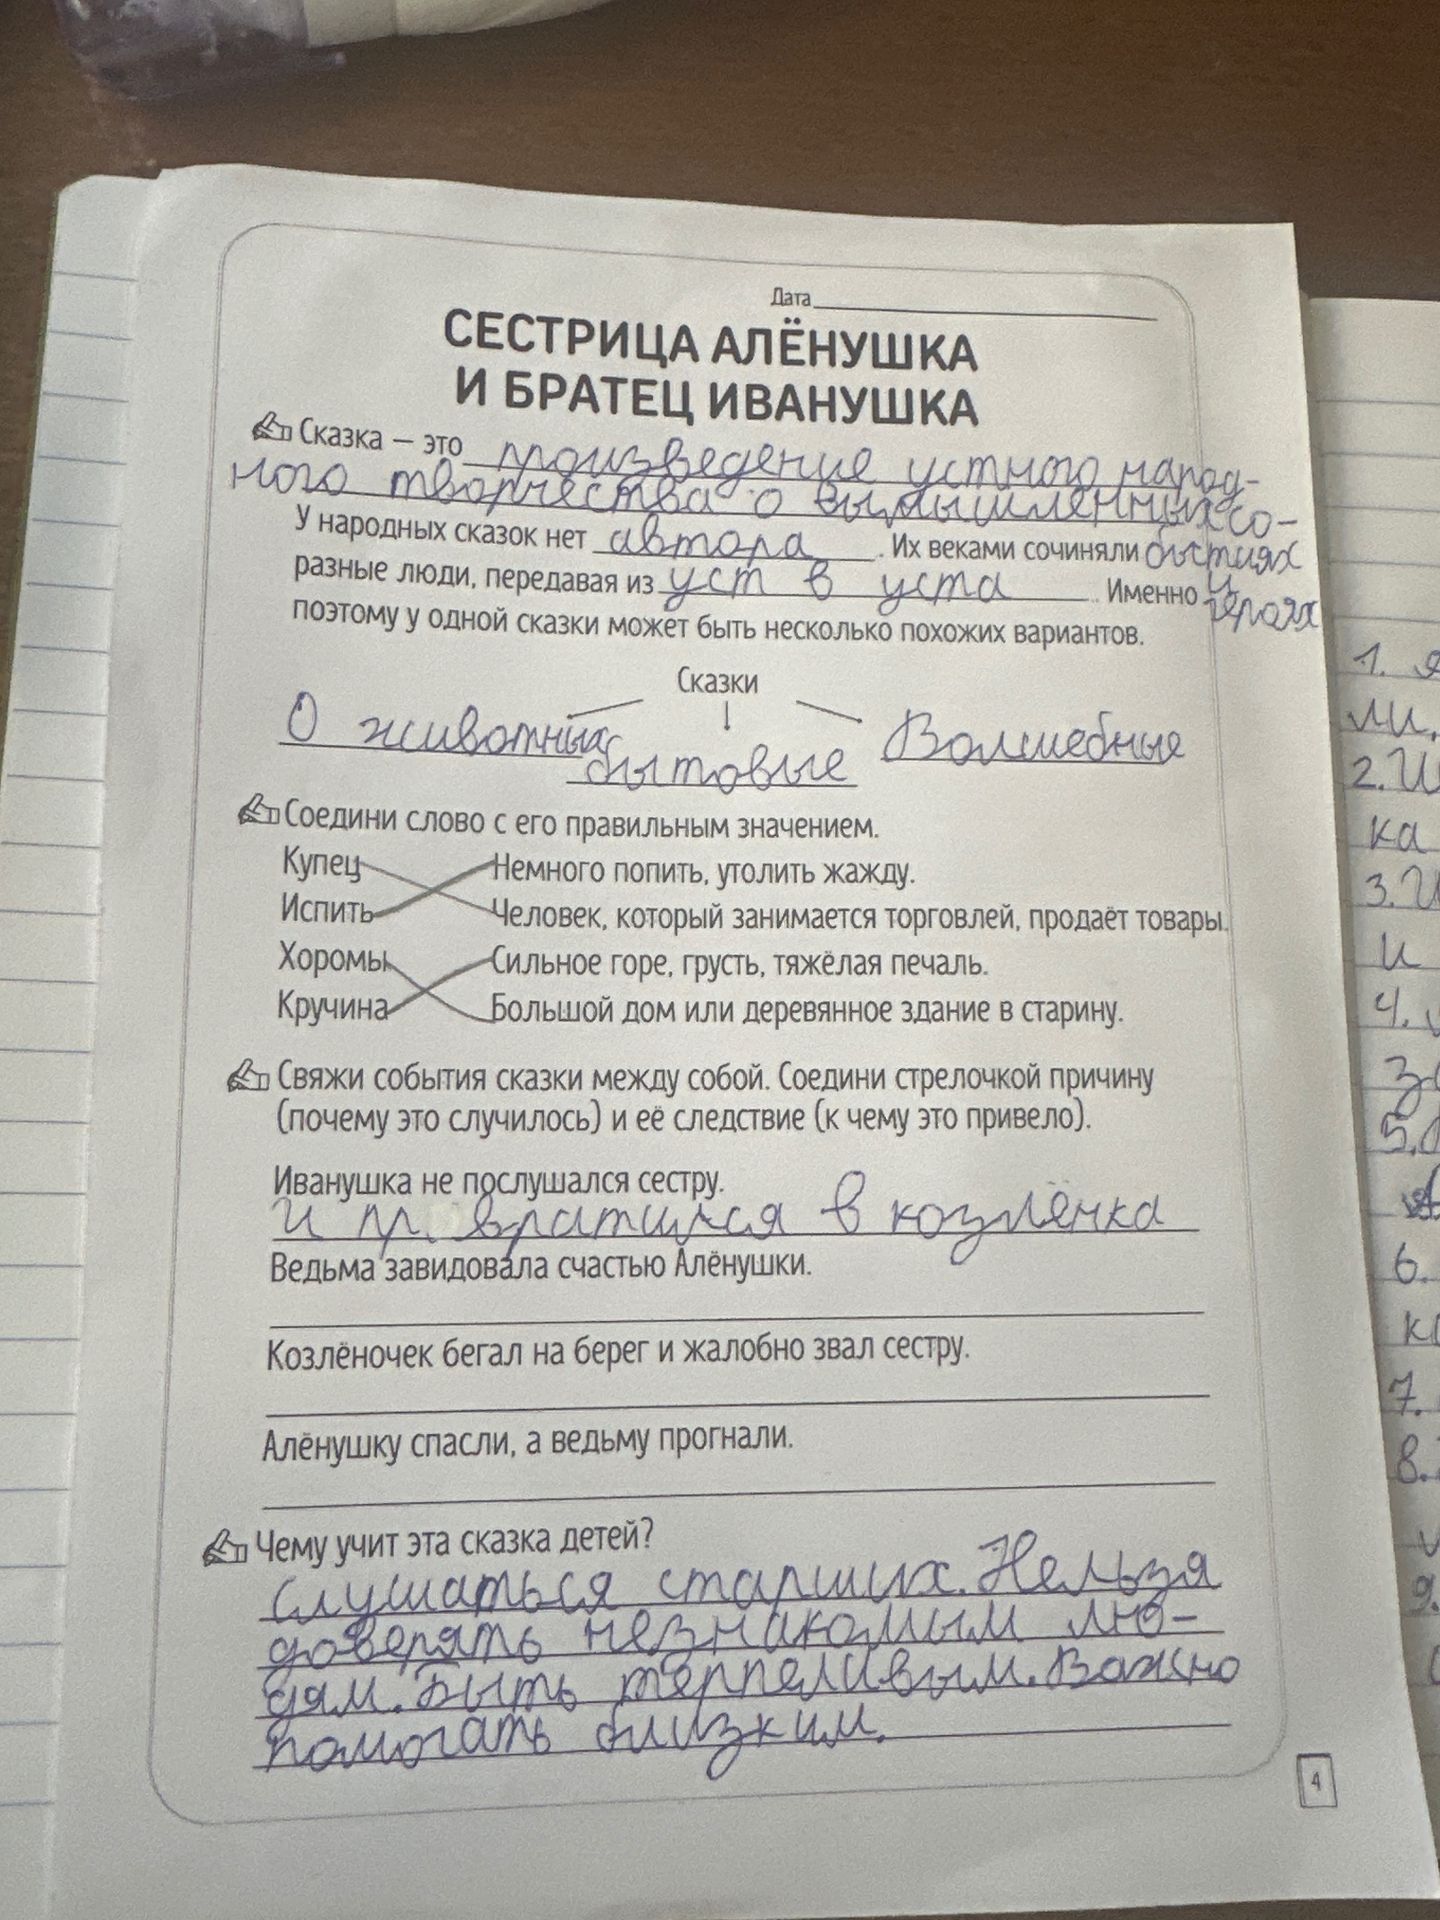 Дата
СЕСТРИЦА АЛЁНУШКА
И БРАТЕЦ ИВАНУШКА
Сказка – это произведение устного народ-
ного творчества о вымышленных со-
У народных сказок нет автора. Их веками сочиняли бытиях
разные люди, передавая из уст в уста. Именно и
поэтому у одной сказки может быть несколько похожих вариантов. героях
Сказки
О животных бытовые Волшебные
Соедини слово с его правильным значением.
Купец Немного попить, утолить жажду.
Испить Человек, который занимается торговлей, продаёт товары.
Хоромы Сильное горе, грусть, тяжёлая печаль.
Кручина Большой дом или деревянное здание в старину.
Свяжи события сказки между собой. Соедини стрелочкой причину
(почему это случилось) и её следствие (к чему это привело).
Иванушка не послушался сестру.
и пр вратился в козлёнка
Ведьма завидовала счастью Алёнушки.
Козлёночек бегал на берег и жалобно звал сестру.
Алёнушку спасли, а ведьму прогнали.
Чему учит эта сказка детей?
Слушаться старших. Нельзя
доверять незнакомым лю-
дям. Быть терпеливым. Важно
помогать близким.
4
1.
ли.
2. И
ка
3. И
и
4.
5.
6.
7.
8.
9.